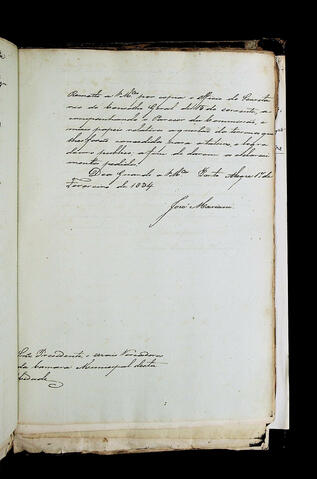 Remetto a V.Mces por copia o officio do Secreta
rio do Conselho Geral de 15 do corrente, a
companhando o Parecer da Commissão, e
mais papeis relativos a questão do terreno que
lhes foi concedido para a
douro publico, a fim de darem o
mento pedido.
Deos Guarde a V.Mces Porto Alegre 1º de
Fevereiro de 1834
José Mariani
Presidente, e mais Vereadores
da Camara Municipal desta
Cidade